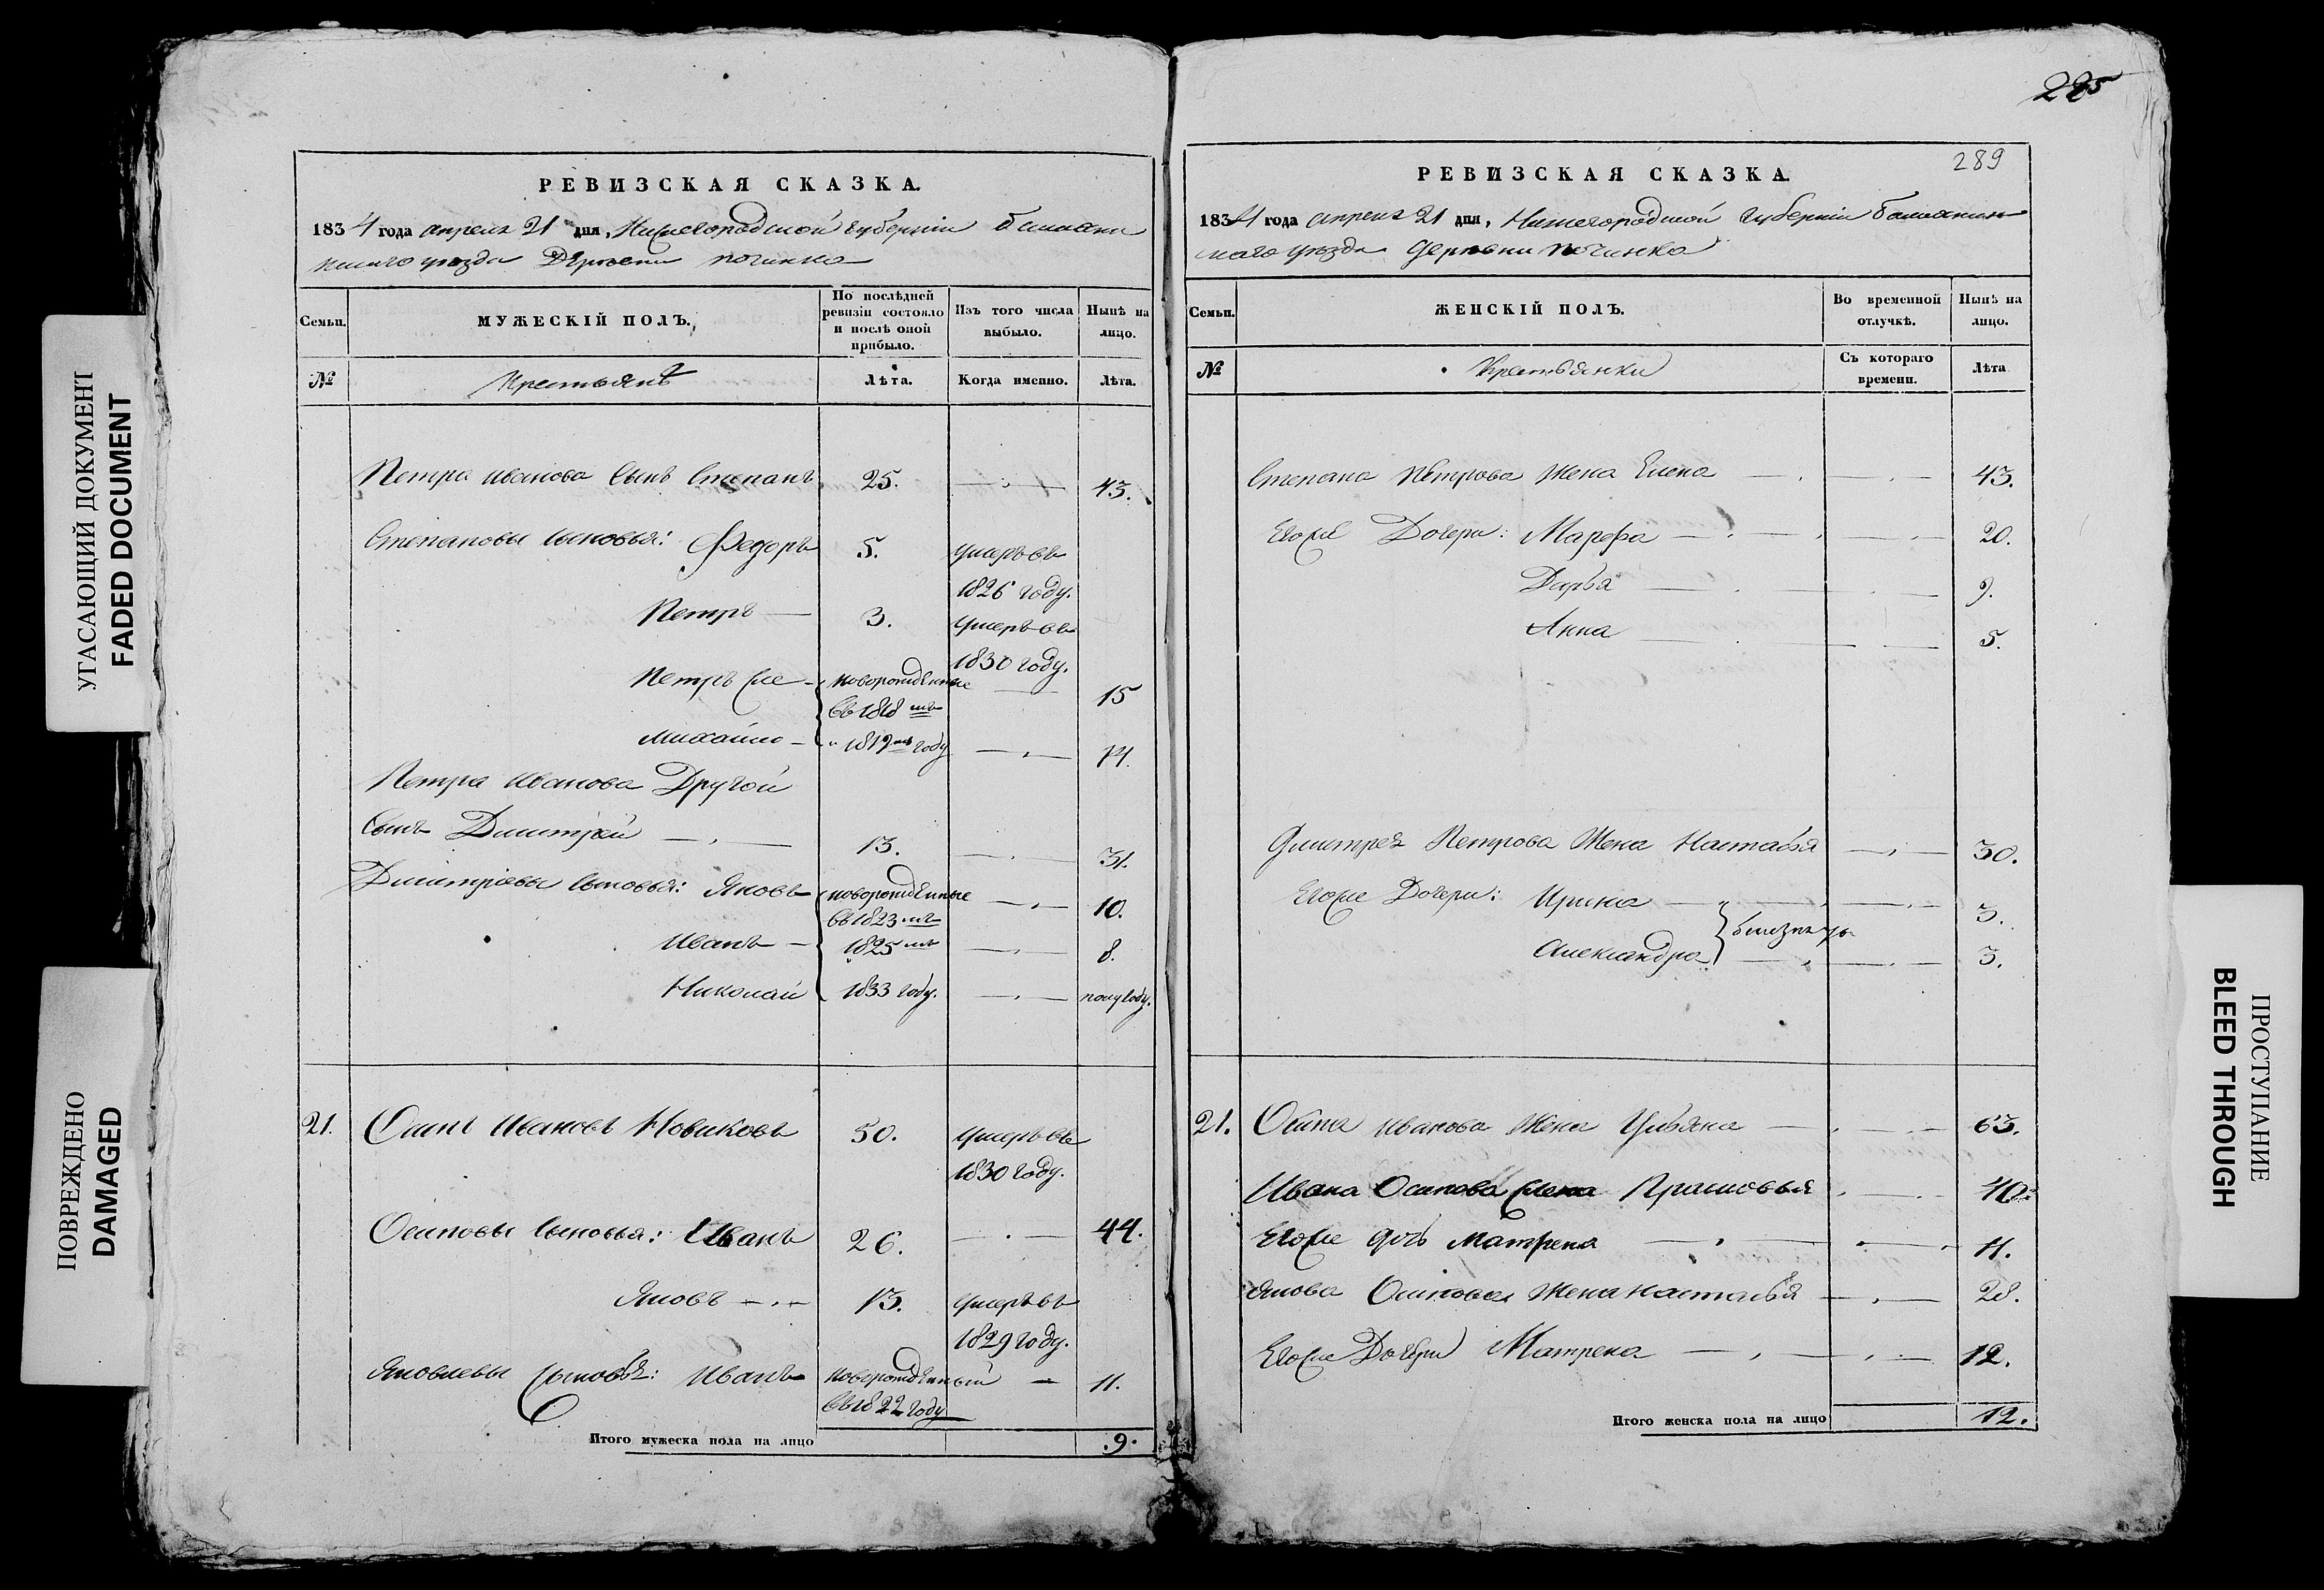 УГАСАЮЩИЙ ДОКУМЕНТ
FADED DOCUMENT
ПОВРЕЖДЕНО
DAMAGED
РЕВИЗСКАЯ СКАЗКА.
1834 года апреля 21 дня, Нижегородской губернiи балахни
нскаго уезда Деревни починка
Семьи.
МУЖЕСКІЙ ПОЛЪ.
По послѣдней ревизіи состояло и послѣ оной прибыло.
Изъ того числа выбыло.
Нынѣ на лицо.
№
Крестьянъ
Лѣта.
Когда именно.
Лѣта.
Петра иванова Сынъ Степанъ 25. 43.
Степановы сыновья: Федоръ 5. умеръ въ
1826 году.
Петръ 3. умеръ въ
1830 году.
Петръ же новорожденные 15
въ 1818 мъ
михайло " 1819 мъ году 14.
Петра иванова Другой
Сынъ Дмитрей 13. 31.
Дмитріевы сыновья: Яковъ новорожденные 10.
въ 1823 мъ
иванъ 1825 мъ 8.
Николай 1833 году. полугоду.
21. Осипъ ивановъ Новиковъ 50. умеръ въ
1830 году.
Осиповы сыновья: Иванъ 26. 44.
Яковъ 13. умеръ въ
1829 году.
Яковлевы сыновья: иванъ новорожденный 11.
въ 1822 году
Итого мужеска пола на лицо .9.
225
289
РЕВИЗСКАЯ СКАЗКА.
1834 года апреля 21 дня, Нижегородской губернiи балахнин
скаго уезда деревни починка
Семьи.
ЖЕНСКІЙ ПОЛЪ.
Во временной отлучкѣ.
Нынѣ на лицо.
№
Крестьянки
Съ котораго времени.
Лѣта
Степана Петрова жена Елена 43.
Егоже Дочери: Марфа 20.
Дарья 9.
Анна 5.
Дмитрея Петрова жена Настасья 30.
Егоже Дочери: Ирина 3.
близнецы
Александра 3.
21. Осипа иванова жена Ульяна 63.
Ивана Осипова жена Прасковья 40.
Егоже дочь матрена 11.
Якова Осипова жена настасья 28.
Егоже Дочери Матрена 12.
Итого женска пола на лицо 12.
ПРОСТУПАНИЕ
BLEED THROUGH